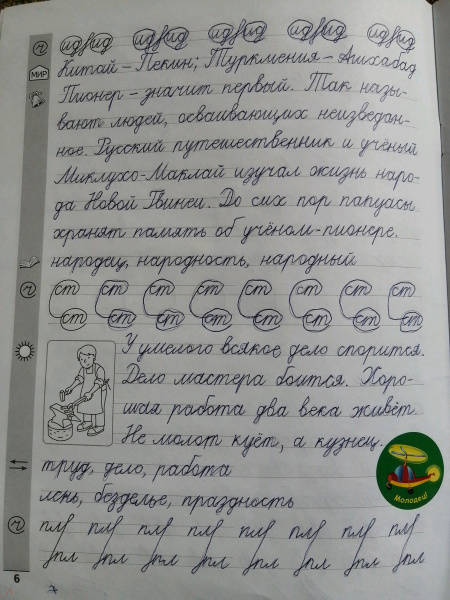 ч идид идид идид идид идид
МИР Китай – Пекин; Туркмения – Ашхабад
Пионер – значит первый. Так назы-
вают людей, осваивающих неизведан-
ное. Русский путешественник и учёный
Миклухо-Маклай изучал жизнь наро-
да Новой Гвинеи. До сих пор папуасы
хранят память об учёном-пионере.
народец, народность, народный
ч ст ст ст ст ст ст ст ст
ст ст ст ст ст ст ст ст
У умелого всякое дело спорится.
Дело мастера боится. Хоро-
шая работа два века живёт.
Не молот куёт, а кузнец.
труд, дело, работа
лень, безделье, праздность
Молодец!
ч пл пл пл пл пл пл пл пл
пл пл пл пл пл пл пл пл
6